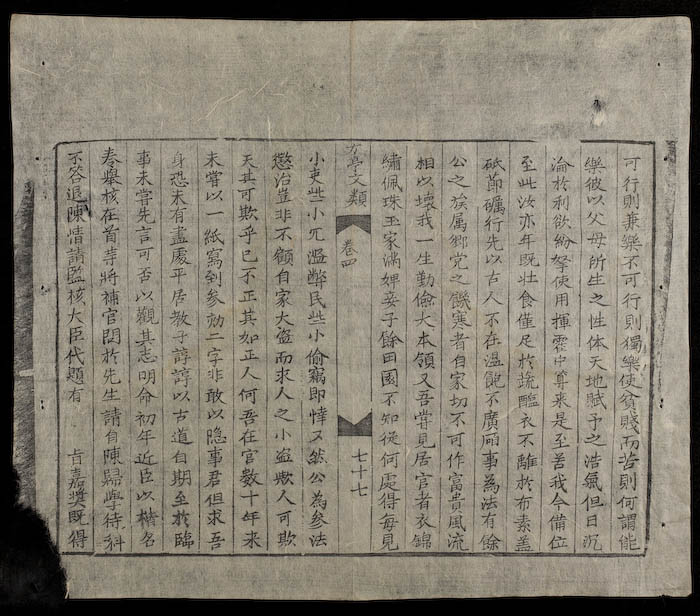 可行則兼樂不可行則獨樂使貧賤而苦則何謂能
樂彼以父母所生之性体天地賦予之浩氣但日沉
淪於利欲紛拏使用揮霍中算來是至苦我今備位
至此汝亦年既壯食僅足於蔬醢衣不離於布素蓋
砥節礪行先以古人不在溫飽不廣廟事為法有餘
公之族属鄉党之饑寒者自家切不可作富貴風流
相以壊我一生勤儉大本領又吾嘗見居官者衣錦
繡佩珠玉家滿婢妾子餘田園不知從何處得每見
方亭文類
卷四
七十七
小吏些小冗濫弊民些小偷竊即悻又然公為參法
懲治豈非不顧自家大盜而求人之小盜欺人可欺
天其可欺乎已不正其如正人何吾在官数十年来
未嘗以一紙寫到参劾二字非敢以隐事君但求吾
身恐未有盡處平居教子諄諄以古道自期至於臨
事未嘗先言可否以觀其志明命初年近臣以楷名
奏舉核在首等將補官間於先生請自陳歸學待科
不容退陳情請監核大臣代題有 肯嘉奬既得